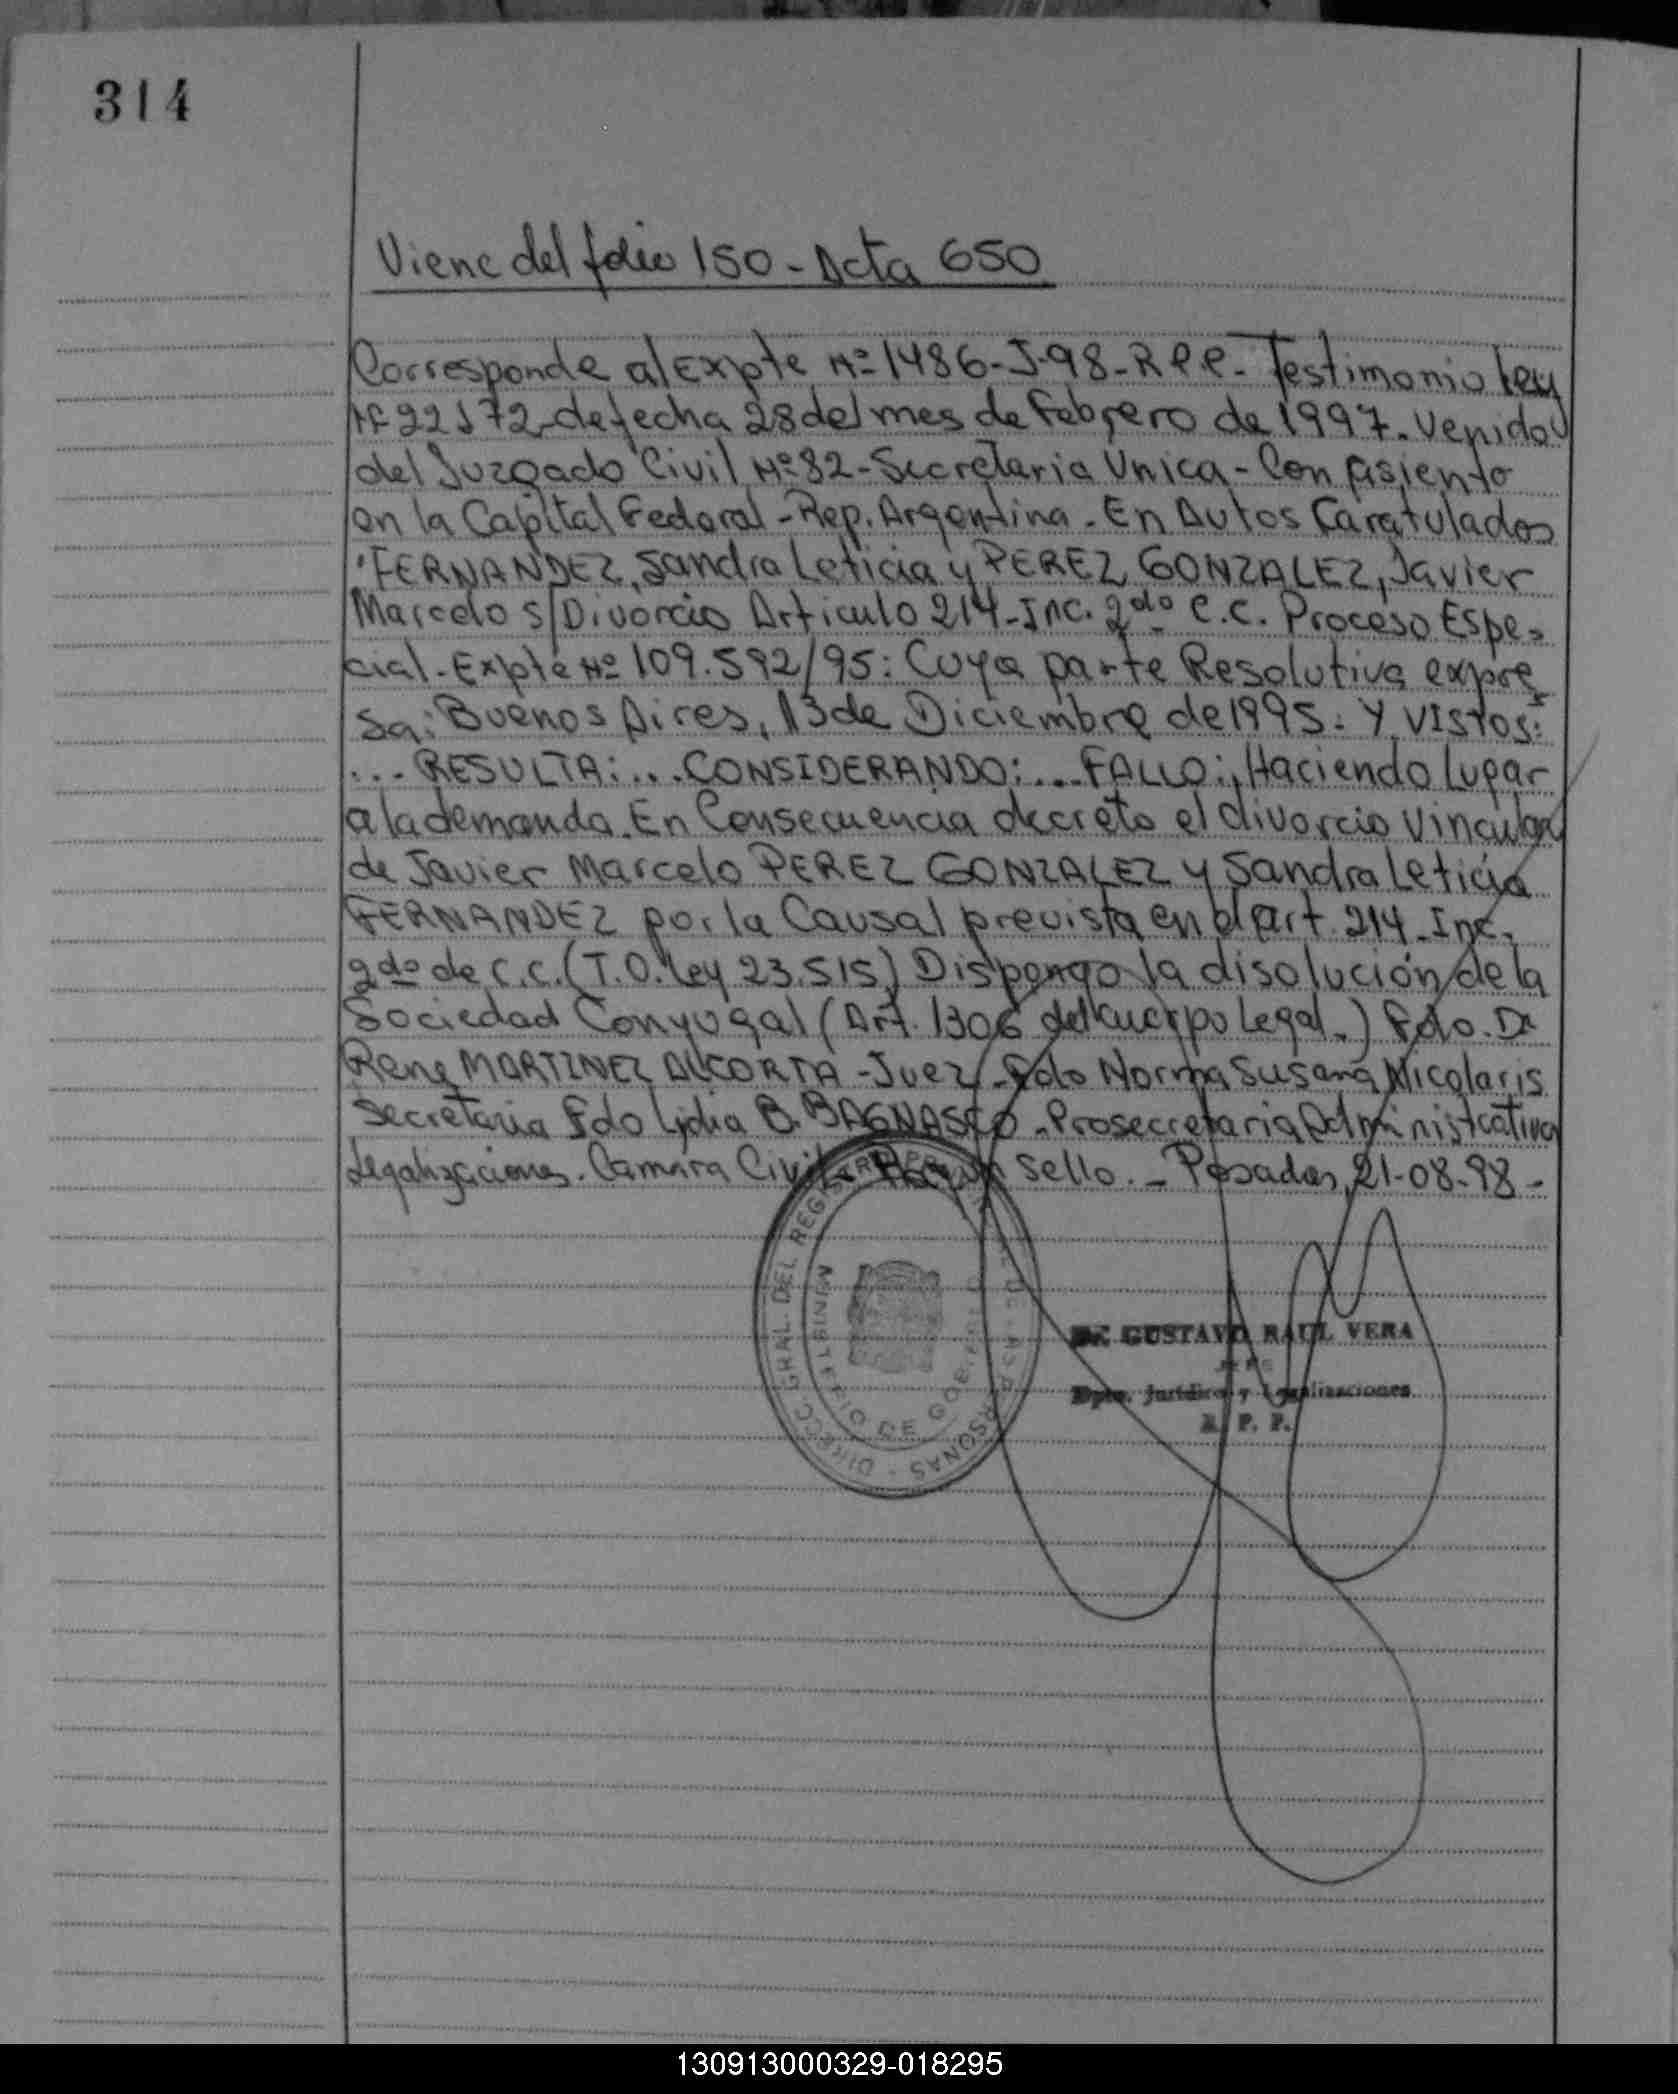 314
Viene del folio 150 - Acta 650
Corresponde al Expte Nº 1486-J-98-R.P.P. - Testimonio Ley
Nº 22172 - de fecha 28 del mes de Febrero de 1997. Venido
del Juzgado Civil Nº 82 - Secretaria Unica - Con Asiento
en la Capital Federal - Rep. Argentina - En Autos Caratulados
"FERNANDEZ, Sandra Leticia y PEREZ GONZALEZ, Javier
Marcelo s/Divorcio Articulo 214 - Inc. 2do C.C. Proceso Espe-
cial - Expte Nº 109.592/95: Cuya parte Resolutiva expre
sa: Buenos Aires, 13 de Diciembre de 1995: Y VISTOS:
... RESULTA: ... CONSIDERANDO: ... FALLO: Haciendo Lugar
a la demanda. En Consecuencia decreto el divorcio Vincular
de Javier Marcelo PEREZ GONZALEZ y Sandra Leticia
FERNANDEZ por la Causal prevista en el Art. 214 - Inc.
2do de C.C. (T.O. Ley 23.515) Dispongo la disolución de la
Sociedad Conyugal (Art. 1306 del Cuerpo Legal.) Fdo. Dr
Rene MARTINEZ ALCORTA - Juez - Fdo Norma Susana Nicolaris
Secretaria Fdo Lydia B. BAGNASCO - Prosecretaria Administrativa
Legalizaciones. Camara Civil - Hay un Sello. - Posadas, 21-08-98 -
DIRECC. GRAL. DEL REGISTRO PROVINCIAL DE LAS PERSONAS
MINISTERIO DE GOBIERNO
Dr. GUSTAVO RAUL VERA
JEFE
Dpto. Jurídico y Legalizaciones
R. P. P.
130913000329-018295